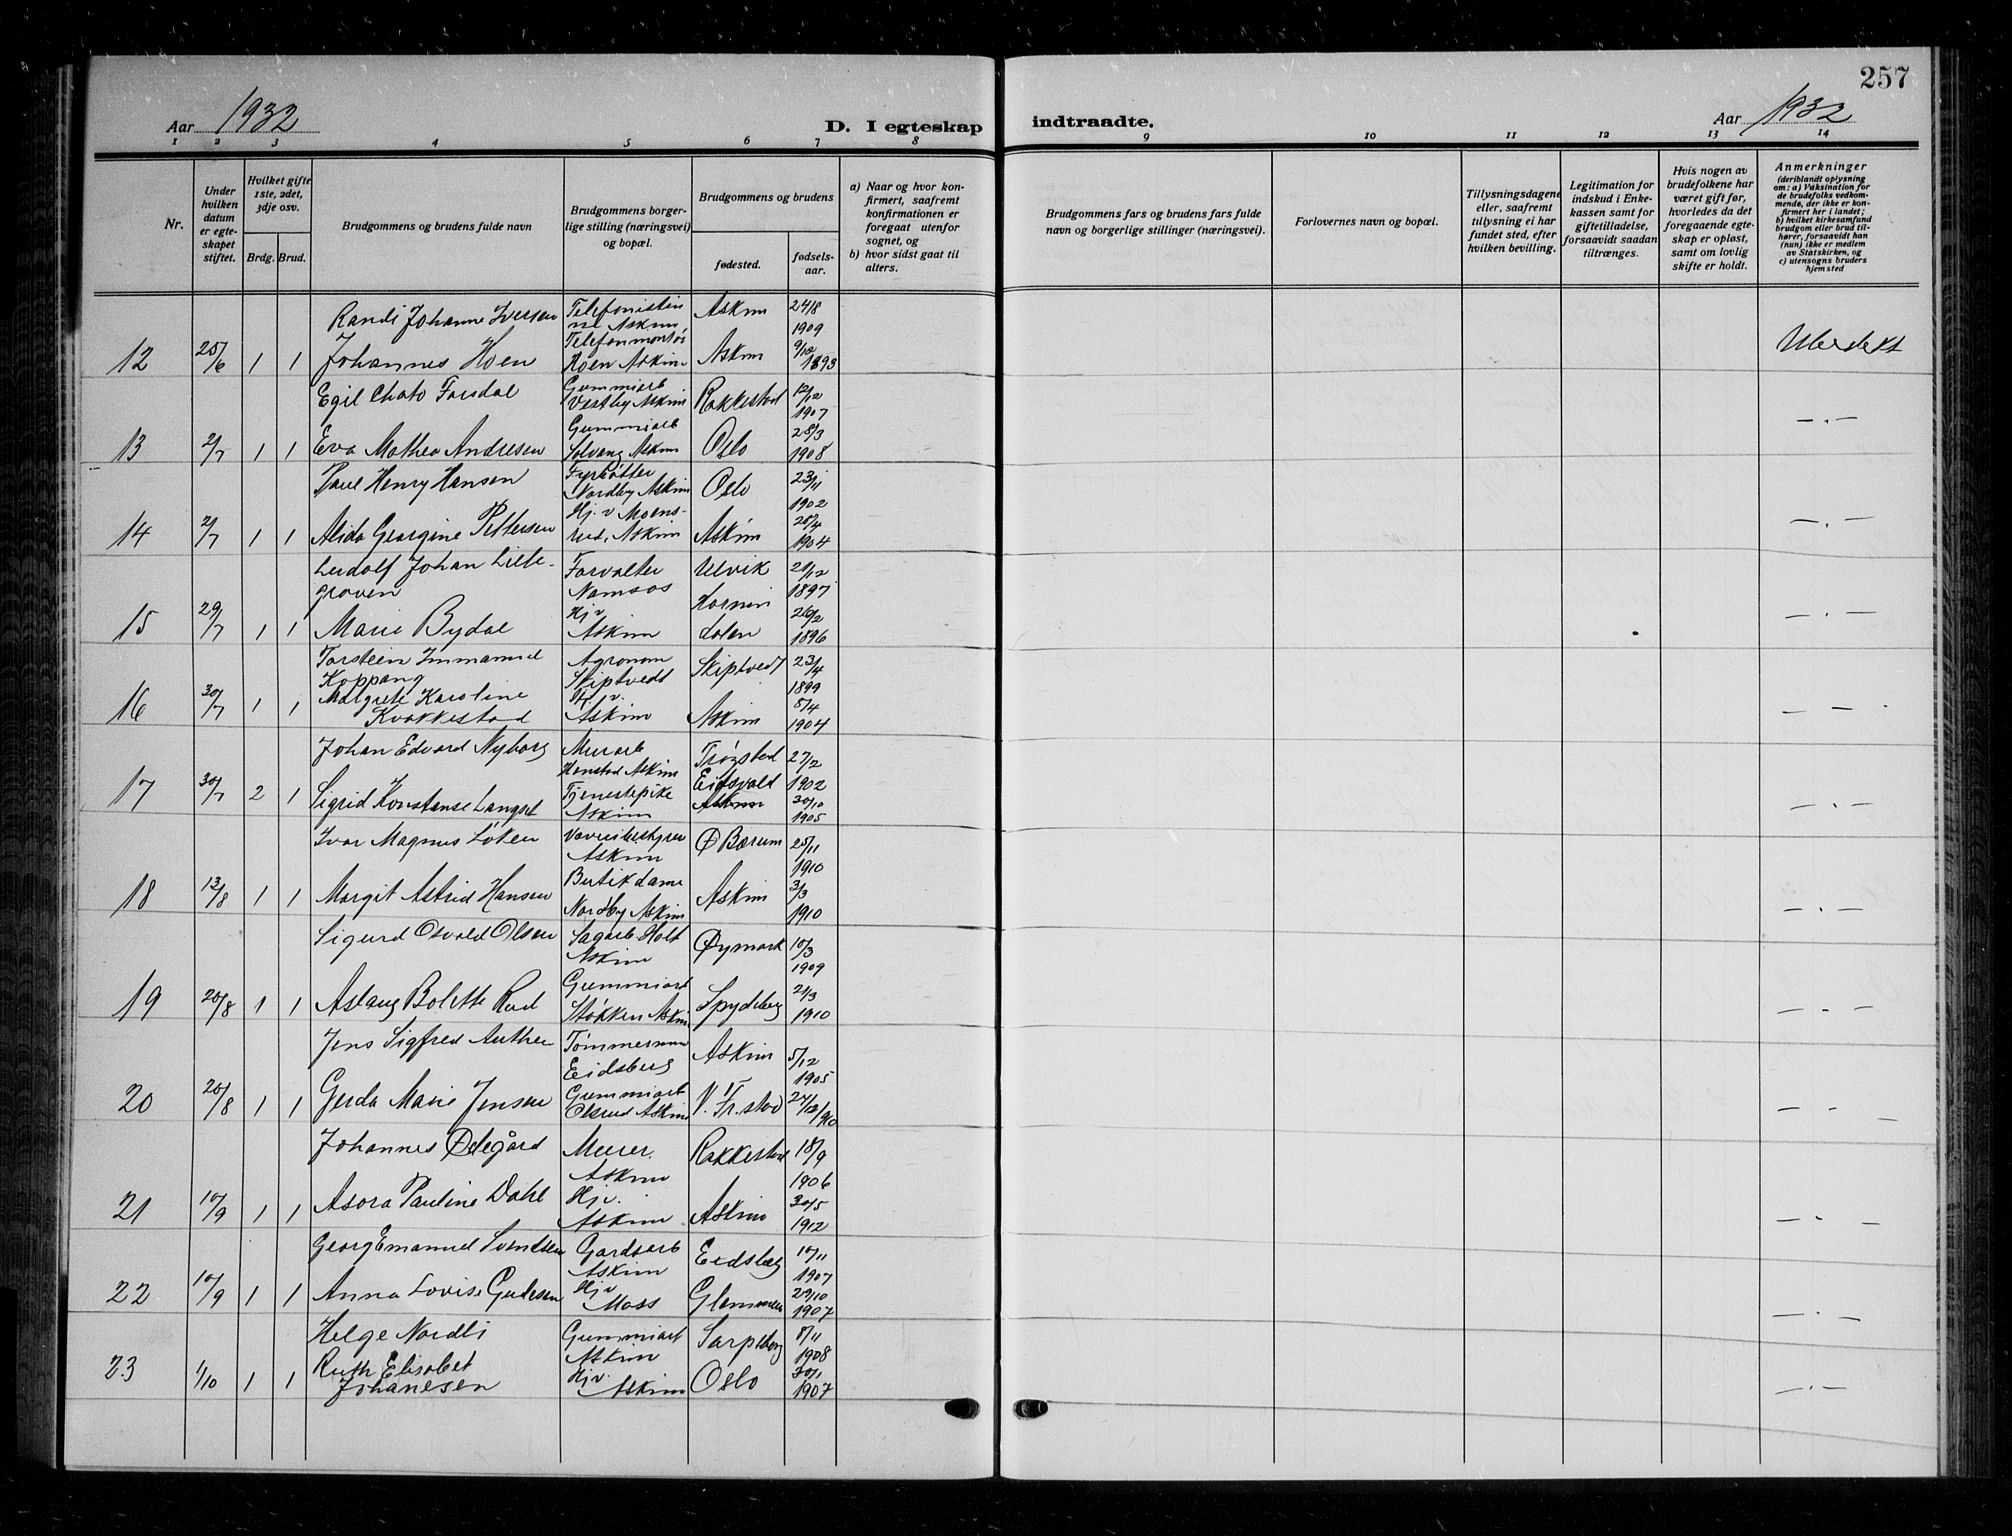 257
Aar 1932
D. I egteskap
indtraadte.
Aar 1932
1 2 3 4 5 6 7 8
9 10 11 12 13 14
Nr.
Under hvilken datum er egteskapet stiftet.
Hvilket gifte 1ste, 2det, 3dje osv.
Brdg. Brud.
Brudgommens og brudens fulde navn
Brudgommens borgerlige stilling (næringsvei) og bopæl.
Brudgommens og brudens
fødested.
fødselsaar.
a) Naar og hvor konfirmert, saafremt konfirmationen er foregaat utenfor sognet, og
b) hvor sidst gaat til alters.
Brudgommens fars og brudens fars fulde navn og borgerlige stillinger (næringsvei).
Forlovernes navn og bopæl.
Tillysningsdagene eller, saafremt tillysning ei har fundet sted, efter hvilken bevilling.
Legitimation for indskud i Enkekassen samt for giftetilladelse, forsaavidt saadan tiltrænges.
Hvis nogen av brudefolkene har været gift før, hvorledes da det foregaaende egteskap er opløst, samt om lovlig skifte er holdt.
Anmerkninger
(deriblandt oplysning om: a) Vaksination for de brudefolks vedkommende, der ikke er konfirmert her i landet; b) hvilket kirkesamfund brudgom eller brud tilhører, forsaavidt han (hun) ikke er medlem av Statskirken, og c) utensogns bruders hjemsted
Randi Johanne Iversen Telefonistin Askim 24/8
ne Askim 1909
Telefonmontør 9/12
12 25/6 1 1 Johannes Hoen Hoen Askim Askim 1893
Egil Chato Forsdal Gummiarb
Vestby Askim Rakkestad 12/12
1907 — . —
Gummiarb 28/3
13 2/7 1 1 Eva Mathea Andresen Solvang Askim Oslo 1908
Paul Henry Hansen Fyrbøtter 23/11
Nordby Askim Oslo
1902
Hj. v Moens- 28/4 — . —
14 2/7 1 1 Alida Georgine Pettersen rud, Askim Askim 1904
Ludolf Johan Lille- Forvalter Ulvik 21/12
groven Namsos 1897
Hj v 26/2 — . —
15 29/7 1 1 Marie Bydal Askim 1896
Torstein Immanuel Agronom Skiptvedt 23/4
Koppang Skiptvedt 1899
Margrete Karoline Hj. v. 8/4 — . —
16 30/7 1 1 Kvakkestad Askim Askim 1904
Johan Edvard Nyborg Murarb Trøgstad 27/2
Askim Eidsvold 1902
17 30/7 2 1 Sigrid Konstanse Langset Tjenestepike Askim 30/10 — . —
Askim 1905
Ivar Magnus Løken Væveribestyrer Ø Bærum 25/11
Askim 1910
Butikdame 3/3
18 13/8 1 1 Margit Astrid Hansen Nordby Askim Askim 1910 — . —
Sigurd Osvald Olsen Sagarb Holt Øymark 10/3
Askim 1909
Gummiarb 21/3
19 20/8 1 1 Aslaug Bolette Rud Støkken Askim Spydeberg 1910 — . —
Jens Sigfred Tømmerman Askim 5/12
Eidsberg 1905
20 20/8 1 1 Gerda Marie Jensen Gummiarb V. Fr.stad 24/12/1910 — . —
Olsrud Askim
Johannes Ødegård Murer. Rakkestad 18/9
Askim 1906
21 10/9 1 1 Asora Pauline Dahl Hj v. Askim 30/5
Askim 1912 — . —
Georg Emanuel Svendsen Gardsarb Eidsberg 10/11
Askim 1907
22 10/9 1 1 Anna Lovise Gulesen Hj v Glemmen 29/10
Moss 1907 — . —
Helge Nordli Gummiarb Sarpsborg 8/11
Askim 1908
23 1/10 1 1 Ruth Elisabet Hj v. Oslo 30/1
Johanesen Askim 1907 — . —